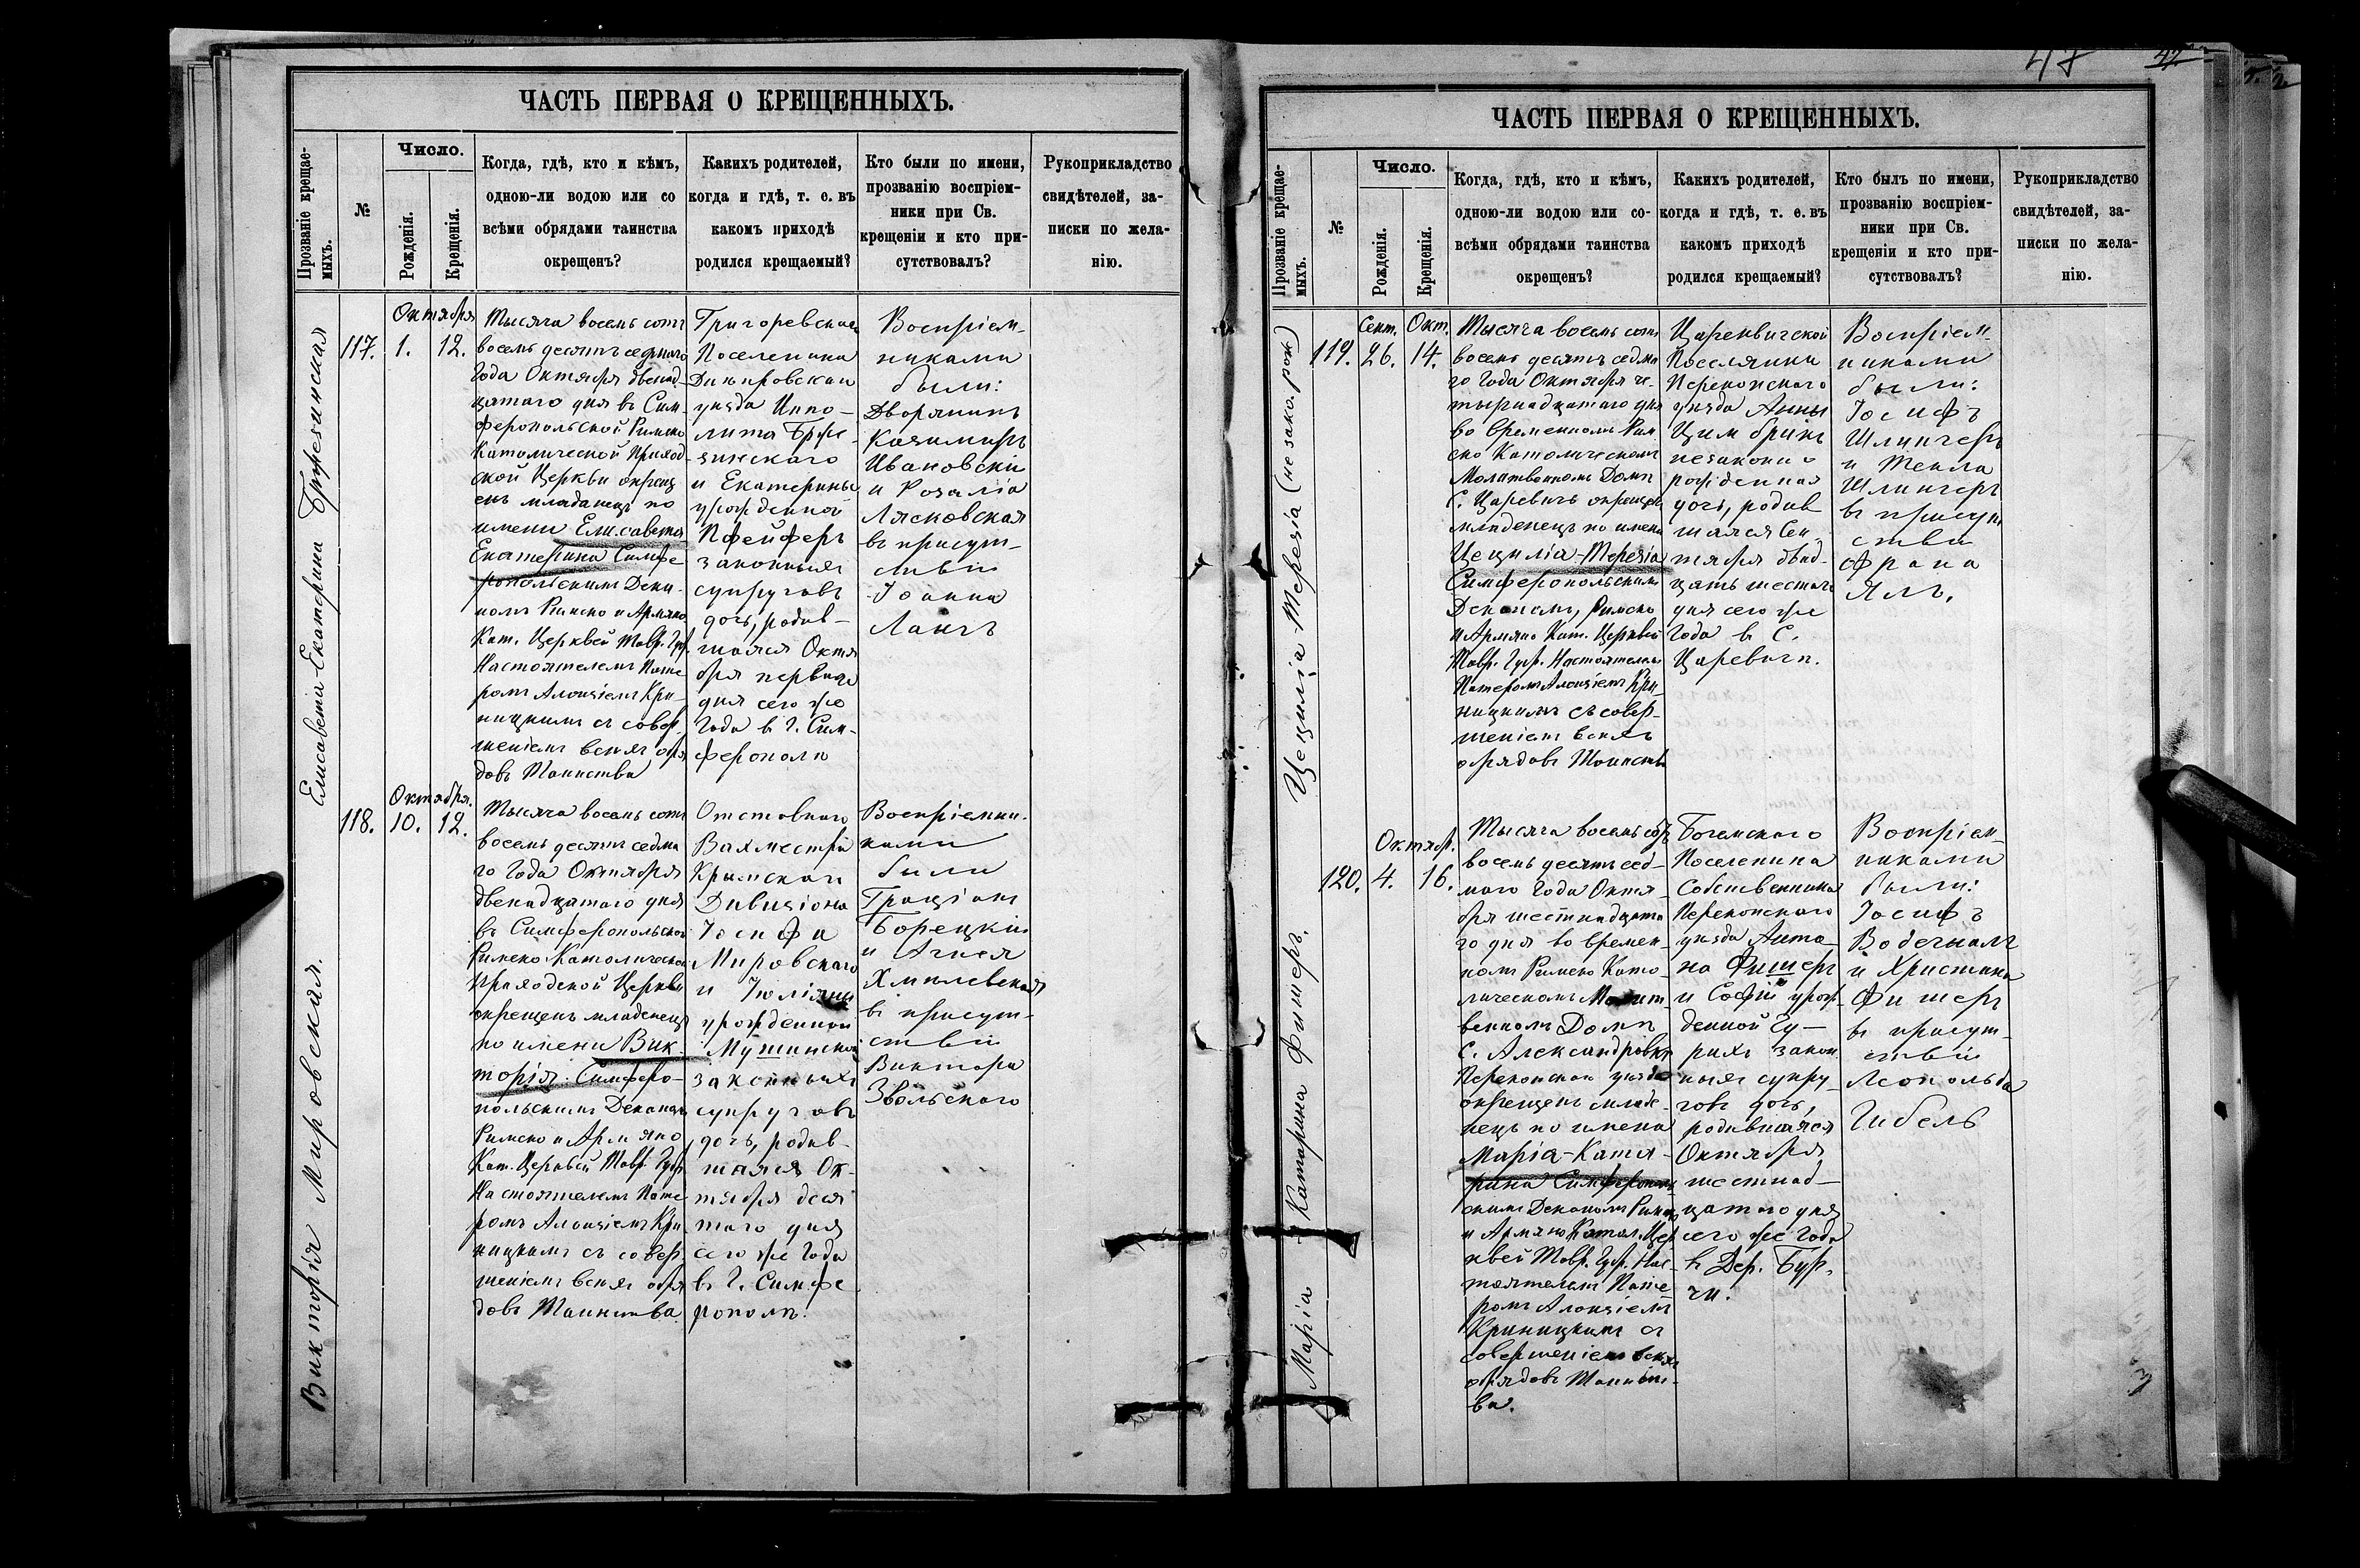 47
47
ЧАСТЬ ПЕРВАЯ О КРЕЩЕННЫХЪ.
Прозваніе крещае-
мыхъ.
№
Число.
Рожденія.
Крещенія.
Когда, гдѣ, кто и кѣмъ,
одною-ли водою или со
всѣми обрядами таинства
окрещенъ?
Какихъ родителей,
когда и гдѣ, т. е. въ
какомъ приходѣ
родился крещаемый?
Кто были по имени,
прозванію воспріем-
ники при Св.
крещеніи и кто при-
сутствовалъ?
Рукоприкладство
свидѣтелей, за-
писки по жела-
нію.
Елисавета-Екатерина Бржезинская
117.
Октября
1.
12.
Тысяча восемь сотъ
восемь десятъ седмаго
Года Октября двенад-
цатаго дня въ Сим-
феропольской Римско
Католической Приход
ской Церкви окрещ
енъ младенецъ по
имени Елисавета
Екатерина Симфе
ропольскимъ Дека-
номъ Римско и Армяно
Кат. Церквей Тавр. Губ.
Настоятелемъ Пате
ромъ Алоизіемъ Кри-
ницкимъ съ совер
шеніемъ всѣхъ обря
довъ Таинства
Григоревскаго
Поселенина
Днѣпровскаго
уѣзда Иппо-
лита Брже-
зинскаго
и Екатерины
урожденной
Пфейферъ
законныхъ
супруговъ
дочь, родив-
шаяся Октя
бря перваго
дня сего же
Года въ Г. Сим-
ферополѣ
Воспріем-
никами
были:
Дворянинъ
Казимиръ
Ивановскій
и Розалія
Лясковская
въ присут-
ствіи
Іоанна
Лангъ
Викторія Мировская.
118.
Октября.
10.
12.
Тысяча восемь сотъ
восемь десятъ седма
го Года Октября
двенадцатаго дня
въ Симферопольской
Римско Католической
Приходской Церкви
окрещенъ младенецъ
по имени Вик-
торія Симферо-
польскимъ Деканомъ
Римско и Армяно
Кат. Церквей Тавр. Губ.
Настоятелемъ Пате
ромъ Алоизіемъ Кри
ницкимъ съ совер
шеніемъ всѣхъ обря
довъ Таинства.
Отставного
Вахмистра
Крымскаго
Дивизіона
Іосифа
Мировскаго
и Юліяны
урожденной
Мушинской
законныхъ
супруговъ
дочь, родив-
шаяся Ок-
тября деся
таго дня
сего же Года
въ Г. Симфе
рополѣ.
Воспріемни-
ками
были
Граціанъ
Борецкій
и Агнея
Хмилевская
въ присут-
ствіи
Виктора
Звольскаго
ЧАСТЬ ПЕРВАЯ О КРЕЩЕННЫХЪ.
Прозваніе крещае-
мыхъ.
№
Число.
Рожденія.
Крещенія.
Когда, гдѣ, кто и кѣмъ,
одною-ли водою или со-
всѣми обрядами таинства
окрещенъ?
Какихъ родителей,
когда и гдѣ, т. е. въ
какомъ приходѣ
родился крещаемый?
Кто былъ по имени,
прозванію воспріем-
ники при Св.
крещеніи и кто при-
сутствовалъ?
Рукоприкладство
свидѣтелей, за-
писки по жела-
нію.
Цецилія-Терезія (незако. рож)
119.
Сент.
26.
Окт.
14.
Тысяча восемь сотъ
восемь десятъ седма
го Года Октября че-
тырнадцатаго дня
во временномъ Рим
ско Католическомъ
Молитвенномъ Домѣ
С. Царевичъ окрещенъ
младенецъ по имени
Цецилія-Терезія
Симферопольскимъ
Деканомъ, Римско
и Армяно Кат. Церквей
Тавр. Губ. Настоятелемъ
Патеромъ Алоизіемъ Кри-
ницкимъ съ совер-
шеніемъ всѣхъ
обрядовъ Таинства
Царенвичской
Поселянки
Перекопскаго
уѣзда Анны
Цимбринъ
незаконно
рожденная
дочь, родив
шаяся Сен-
тября двад-
цать шестаго
дня сего же
Года въ С.
Царевичѣ.
Воспріем-
никами
были:
Іосифъ
Шлинчеръ
и Текла
Шлинчеръ
въ присут
ствіи
Франа
Яль.
Марія-Катарина Фишеръ.
120.
Октябр.
4.
16.
Тысяча восемь сотъ
восемь десятъ сед-
маго Года Октя-
бря шестнадцата
го дня во времен-
номъ Римско Като-
лическомъ Молит
венномъ Домѣ
С. Александровка
Перекопскаго уѣзда
окрещенъ младе-
нецъ по имени
Марія-Ката-
рина Симферополь
скимъ Деканомъ Римско
и Армяно Катол. Цер
квей Тавр. Губ. Нас-
тоятелемъ Пате
ромъ Алоизіемъ
Криницкимъ съ
совершеніемъ всѣхъ
обрядовъ Таинст-
ва.
Богемскаго
Поселенина
Собственника
Перекопскаго
уѣзда Анто-
на Фишеръ
и Софіи урож-
денной Гу-
рихъ закон
ныхъ супру-
говъ дочь,
родившаяся
Октября
шестнад-
цатаго дня
сего же Года
въ Дер. Бур-
чи.
Воспріем-
никами
были:
Іосифъ
Водечналъ
и Христина
Фишеръ
въ присут-
ствіи
Леопольда
Гибель